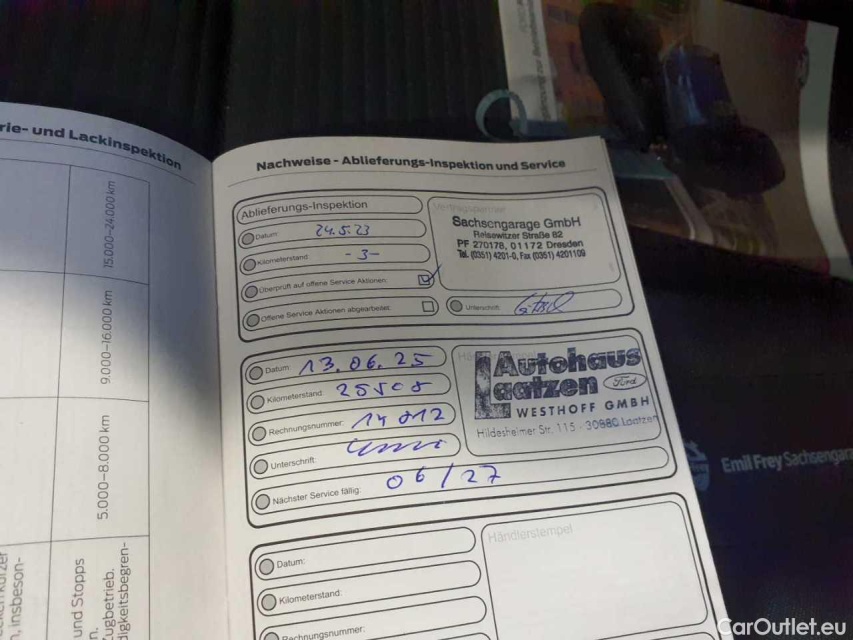 rie- und Lackinspektion
15.000–24.000 km
9.000–16.000 km
5.000–8.000 km
und Stopps
n, insbeson-
Nachweise - Ablieferungs-Inspektion und Service
Ablieferungs-Inspektion
Datum: 24.5.23
Kilometerstand: -3-
Überprüft auf offene Service Aktionen:
Offene Service Aktionen abgearbeitet:
Sachsengarage GmbH
Reisewitzer Straße 82
PF 270178, 01172 Dresden
Tel. (0351) 4201-0, Fax (0351) 4201109
Unterschrift:
Datum: 13.06.25
Kilometerstand: 25508
Rechnungsnummer: 14012
Unterschrift:
Nächster Service fällig: 06/27
Autohaus
Laatzen
Ford
WESTHOFF GMBH
Hildesheimer Str. 115 - 30880 Laatzen
Datum:
Kilometerstand:
Rechnungsnummer:
Händlerstempel
Emil Frey Sachsengara
CarOutlet.eu